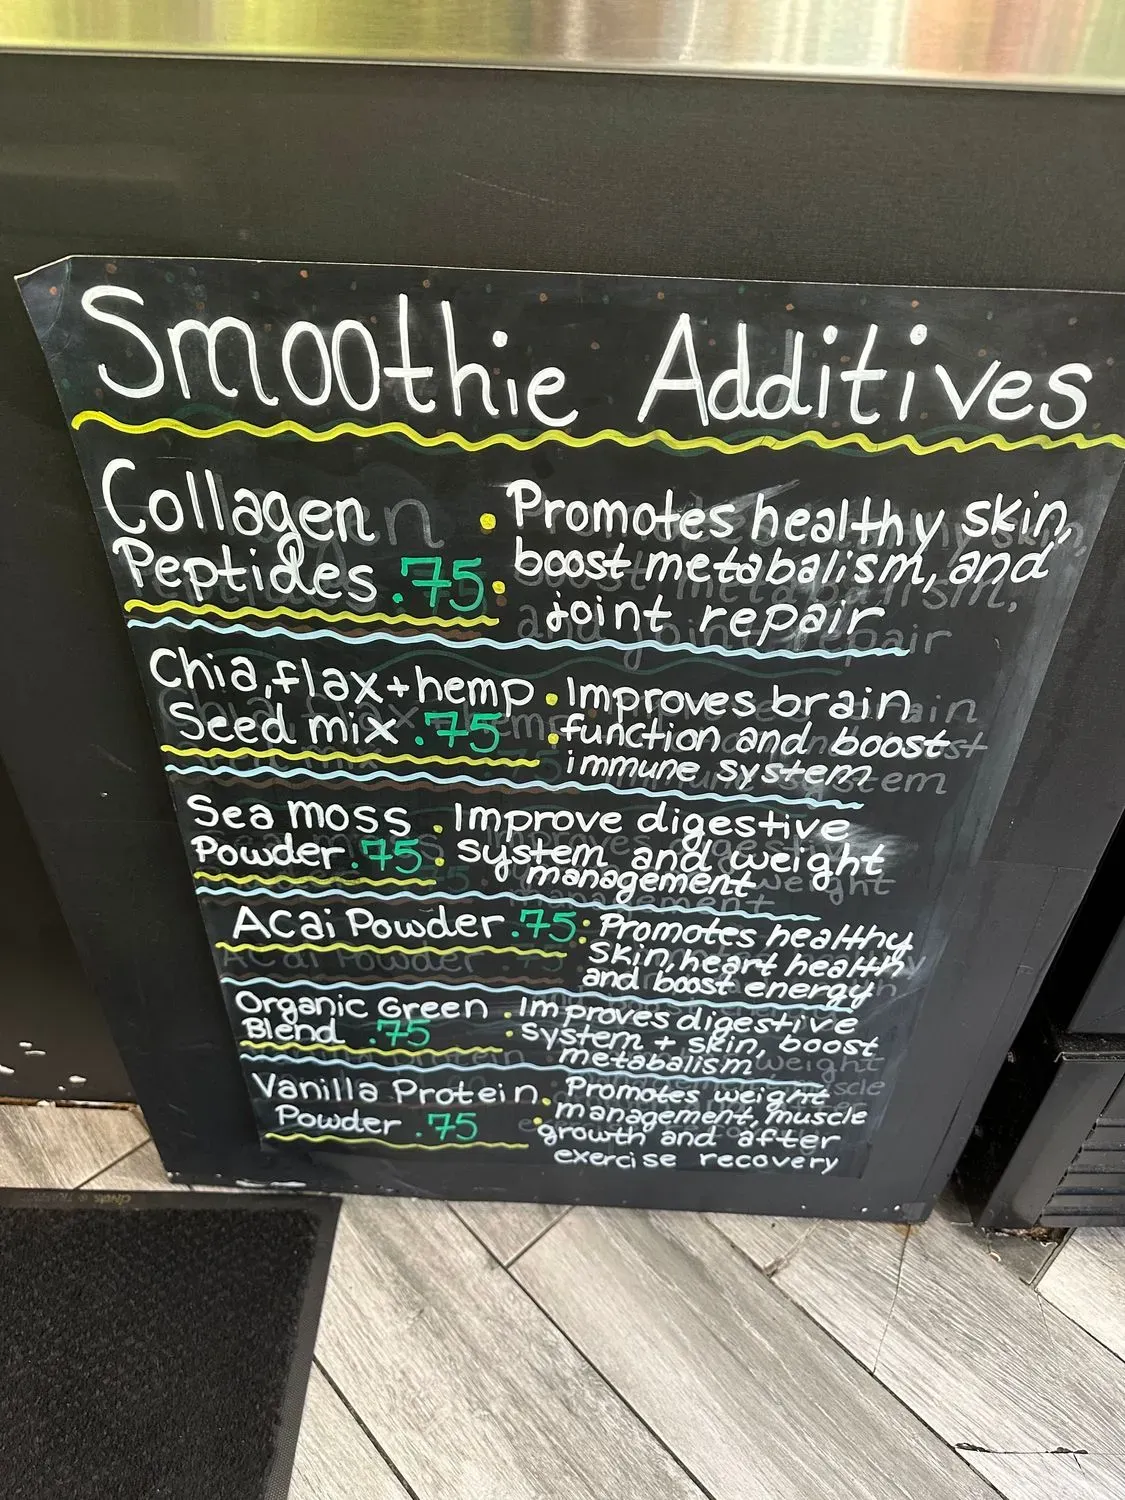 Smoothie Additives
Collagen
Peptides .75
Promotes healthy skin,
boost metabalism, and
joint repair
Chia, flax + hemp
Seed mix .75
Improves brain
function and boost
immune system
Sea moss
Powder .75
Improve digestive
system and weight
management
Acai Powder .75
Promotes healthy
skin, heart health
and boost energy
Organic Green
Blend .75
Improves digestive
system + skin, boost
metabalism
Vanilla Protein
Powder .75
Promotes weight
management, muscle
growth and after
exercise recovery